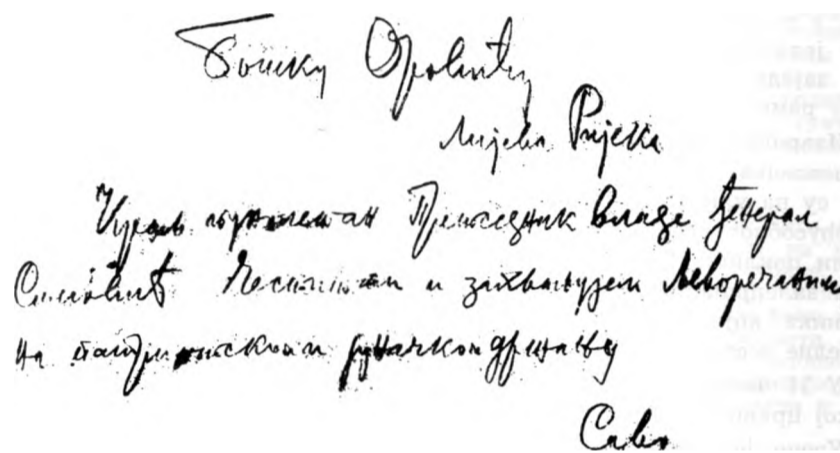 Бошку
Лијева Ријека
Председник владе Ђенерал
Симовић Честитам и захваљујем Љеворечанима
на патриотском јуначком држању
Саво